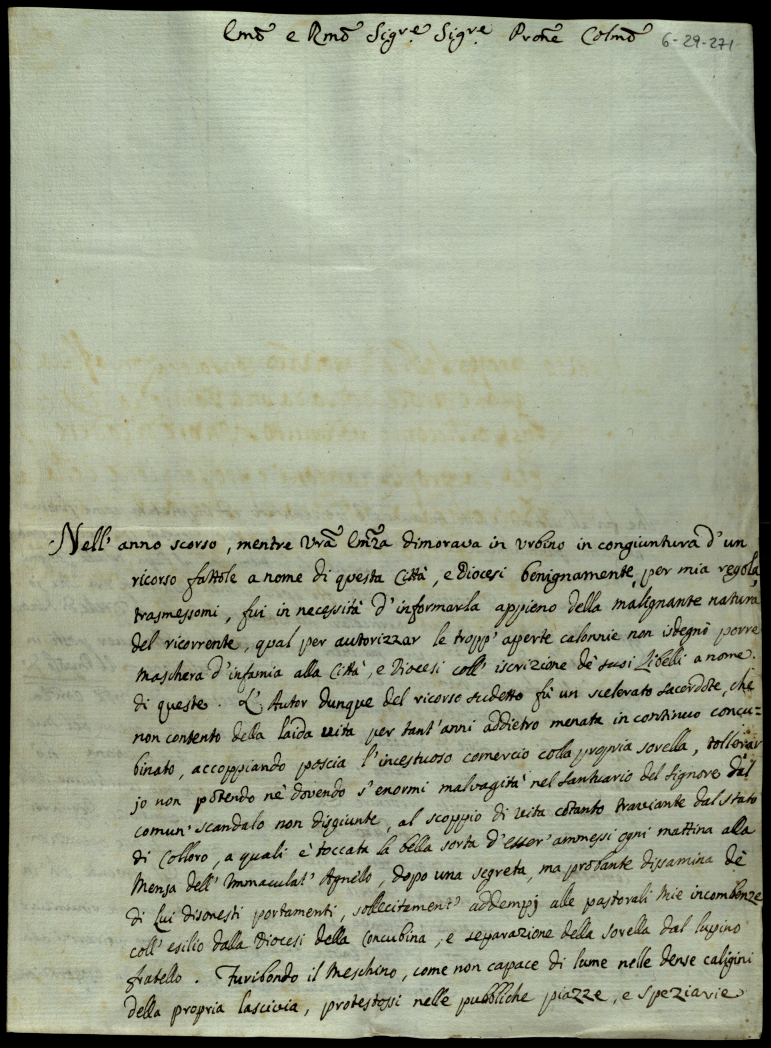 Emō e Rmō Sigre Sigre Prone Colmō 6-29-271
Nell' anno scorso, mentre Vrā Emza dimorava in Urbino in congiuntura d'un
ricorso fattole a nome di questa Città, e Diocesi benignamente, per mia regola,
trasmessomi, fui in necessità d'informarla appieno della malignante natura
del ricorrente, qual per autorizzar le tropp' aperte calonnie non isdegnò porre
maschera d'infamia alla Città, e Diocesi coll' iscrizione de' suoi libelli a nome
di queste. L'Autor dunque del ricorso sudetto fù un scelerato sacerdote, che
non contento della laida vita per tant' anni addietro menata in continuo concu=
binato, accoppiando poscia l'incestuoso comercio colla propria sorella, tollerar
jo non potendo nè dovendo s'enormi malvagità nel santuario del Signore dal
comun' scandalo non disgiunte, al scoppio di vita cotanto traviante dal stato
di Colloro, a quali è toccata la bella sorta d'esser' ammessi ogni mattina alla
Mensa dell' Immaculat' Agnello, dopo una segreta, ma probante dissamina de'
di Lui disonesti portamenti, sollecitament' addempj alle pastorali mie incombenze
coll' esilio dalla Diocesi della Concubina, e separazione della sorella dal lupino
fratello. Furibondo il Meschino, come non capace di lume nelle dense caligini
della propria lascivia, protestossi nelle pubbliche piazze, e speziarie